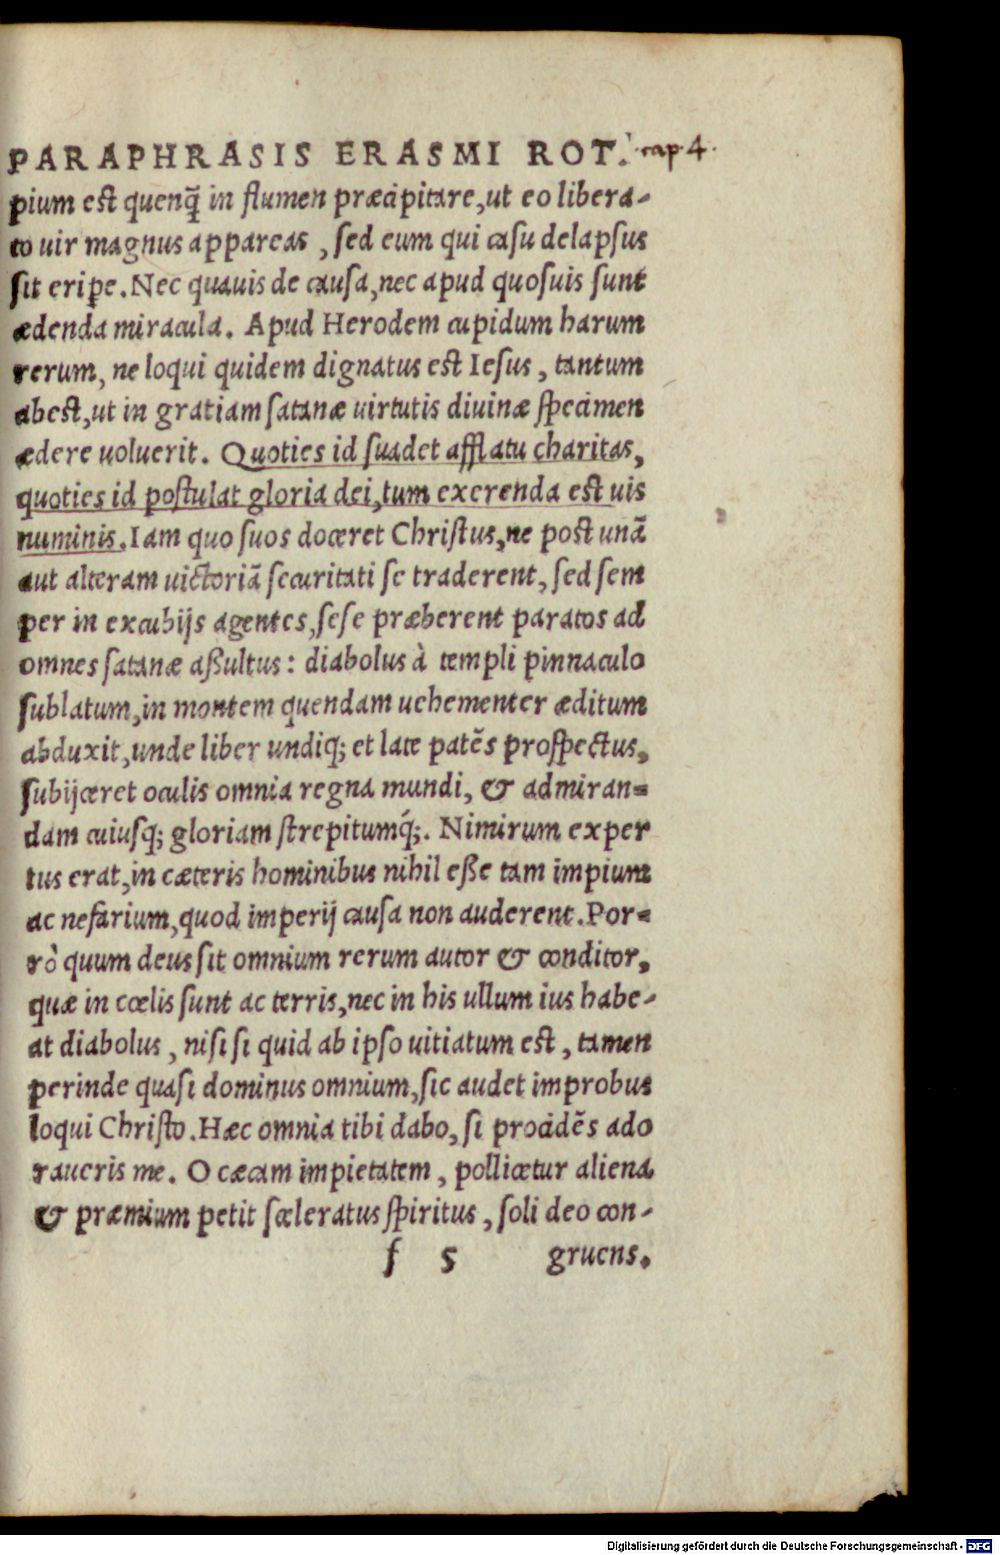 PARAPHRASIS ERASMI ROT. cap. 4.
pium est quenq̃ in flumen præcipitare, ut eo libera-
to uir magnus appareas, sed eum qui casu delapsus
sit eripe. Nec quauis de causa, nec apud quosuis sunt
ædenda miracula. Apud Herodem cupidum harum
rerum, ne loqui quidem dignatus est Iesus, tantum
abest, ut in gratiam satanæ uirtutis diuinæ specimen
ædere uoluerit. Quoties id suadet afflatu charitas,
quoties id postulat gloria dei, tum exerenda est uis
numinis. Iam quo suos doceret Christus, ne post unã
aut alteram uictoriã securitati se traderent, sed sem
per in excubijs agentes, sese præberent paratos ad
omnes satanæ aßultus: diabolus à templi pinnaculo
sublatum, in montem quendam uehementer æditum
abduxit, unde liber undiq; et late patẽs prospectus,
subijceret oculis omnia regna mundi, & admiran-
dam cuiusq; gloriam strepitumq́;. Nimirum exper
tus erat, in cæteris hominibus nihil eße tam impium
ac nefarium, quod imperij causa non auderent. Por-
rò quum deus sit omnium rerum autor & conditor,
quæ in cœlis sunt ac terris, nec in his ullum ius habe-
at diabolus, nisi si quid ab ipso uitiatum est, tamen
perinde quasi dominus omnium, sic audet improbus
loqui Christo. Hæc omnia tibi dabo, si procidẽs ado
raueris me. O cæcam impietatem, pollicetur aliena
& præmium petit sceleratus spiritus, soli deo con-
f 5 gruens.
Digitalisierung gefördert durch die Deutsche Forschungsgemeinschaft - DFG